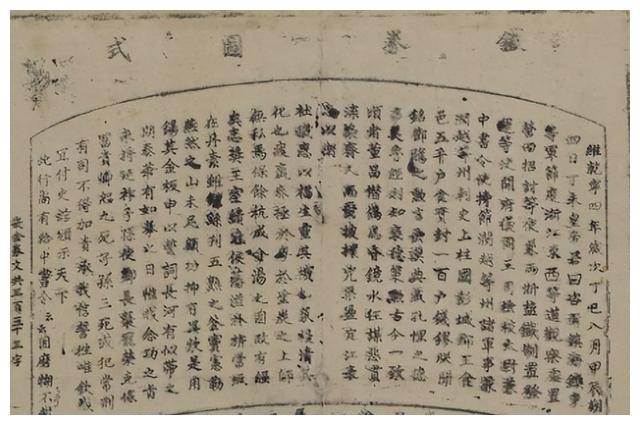 鐵券圖式
維乾寧四年歲次丁巳八月甲辰朔
四日丁未皇帝若曰咨爾鎮海鎮東
等軍節度浙江東西等道觀察處置
營田招討等使兼兩浙鹽鐵制置發
運等使開府儀同三司檢校太尉兼
中書令使持節潤越等州諸軍事兼
潤越等州刺史上柱國彭城郡王食
邑五千戶食實封一百戶錢鏐朕聞
銘鄧騭之勳言垂漢典載孔悝之德
事美魯經則知褒德策勳古今一致
頃者董昌僭偽為昏鏡水狂謀惡貫
渫染齊人而爾披攘兇渠盪定江表
忠以衛
社稷惠以福生靈其機也氛祲清其
化也疲羸泰拯於粵於塗炭之上師
無私焉保餘杭成金湯之固政有經
矣志獎王室績冠侯藩溢於旂常流
在丹素雖鍾繇刊五熟之釜竇憲勒
燕然之山未足顯功抑有異數是用
錫其金板申以誓詞長河有似帶之
期泰華有如拳之日惟我念功之旨
永將延祚子孫使卿長襲寵榮克保
富貴卿恕九死子孫三死或犯常刑
有司不得加責承我信誓往惟欽哉
宜付史館頒示天下
此行尚有給中書令云云因磨糊不
嵌金券文共三百三十三字